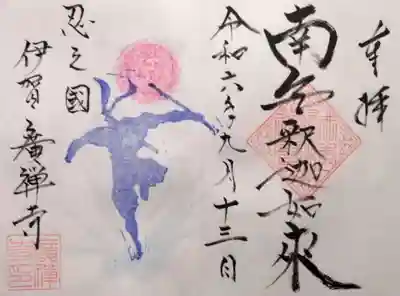 奉拝
南無釈迦如来
令和六年九月十三日
忍之國
伊賀廣禅寺